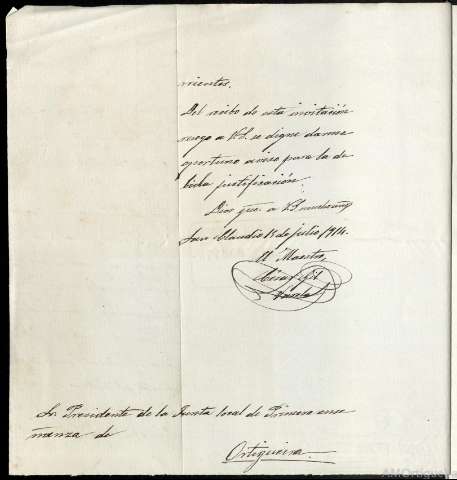 mientos.
Del recibo de esta invitación
ruego a V.S. se digne darme
oportuno aviso para la de
bida justificación.
Dios gue. a V.S. muchos
San Claudio 15 de julio 1914.
El Maestro,
César
Varela
Sr. Presidente de la Junta local de Primera ense
ñanza de
Ortigueira.
AMOrtigueira